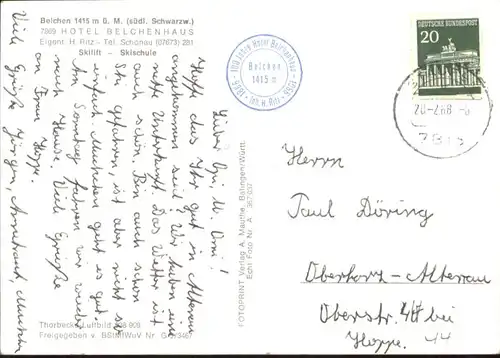 Belchen 1415 m ü. M. (südl. Schwarzw.)
7869 HOTEL BELCHENHAUS
Eigent. H. Ritz - Tel. Schönau (07673) 281
Skilift - Skischule
100 Jahre Hotel Belchenhaus
1866 - 1966
Belchen
1415 m
Inh. H. Ritz
DEUTSCHE BUNDESPOST
20
Lieber Opi u. Omi!
Hoffe das Ihr gut in Altenau
angekommen seid? Wir haben eine
nette Unterkunft. Das Wetter ist
auch schön. Bin auch schon
Ski gefahren, ist aber nicht so
einfach. Ansonsten geht es gut.
Am Sonntag fahren wir wieder
nach Hause. Viele Grüße
an Frau Hoppe.
Viele Grüße Jürgen, Annetraut,
FOTOPRINT Verlag A. Mauthe, Balingen/Württ.
Echt Foto Nr. A 362 037
Thorbecke-Luftbild
Freigegeben v. BStMfWuV Nr. G
Herrn
Paul Döring
Oberharz-Altenau
Oberstr. 44 bei
Hoppe. 44